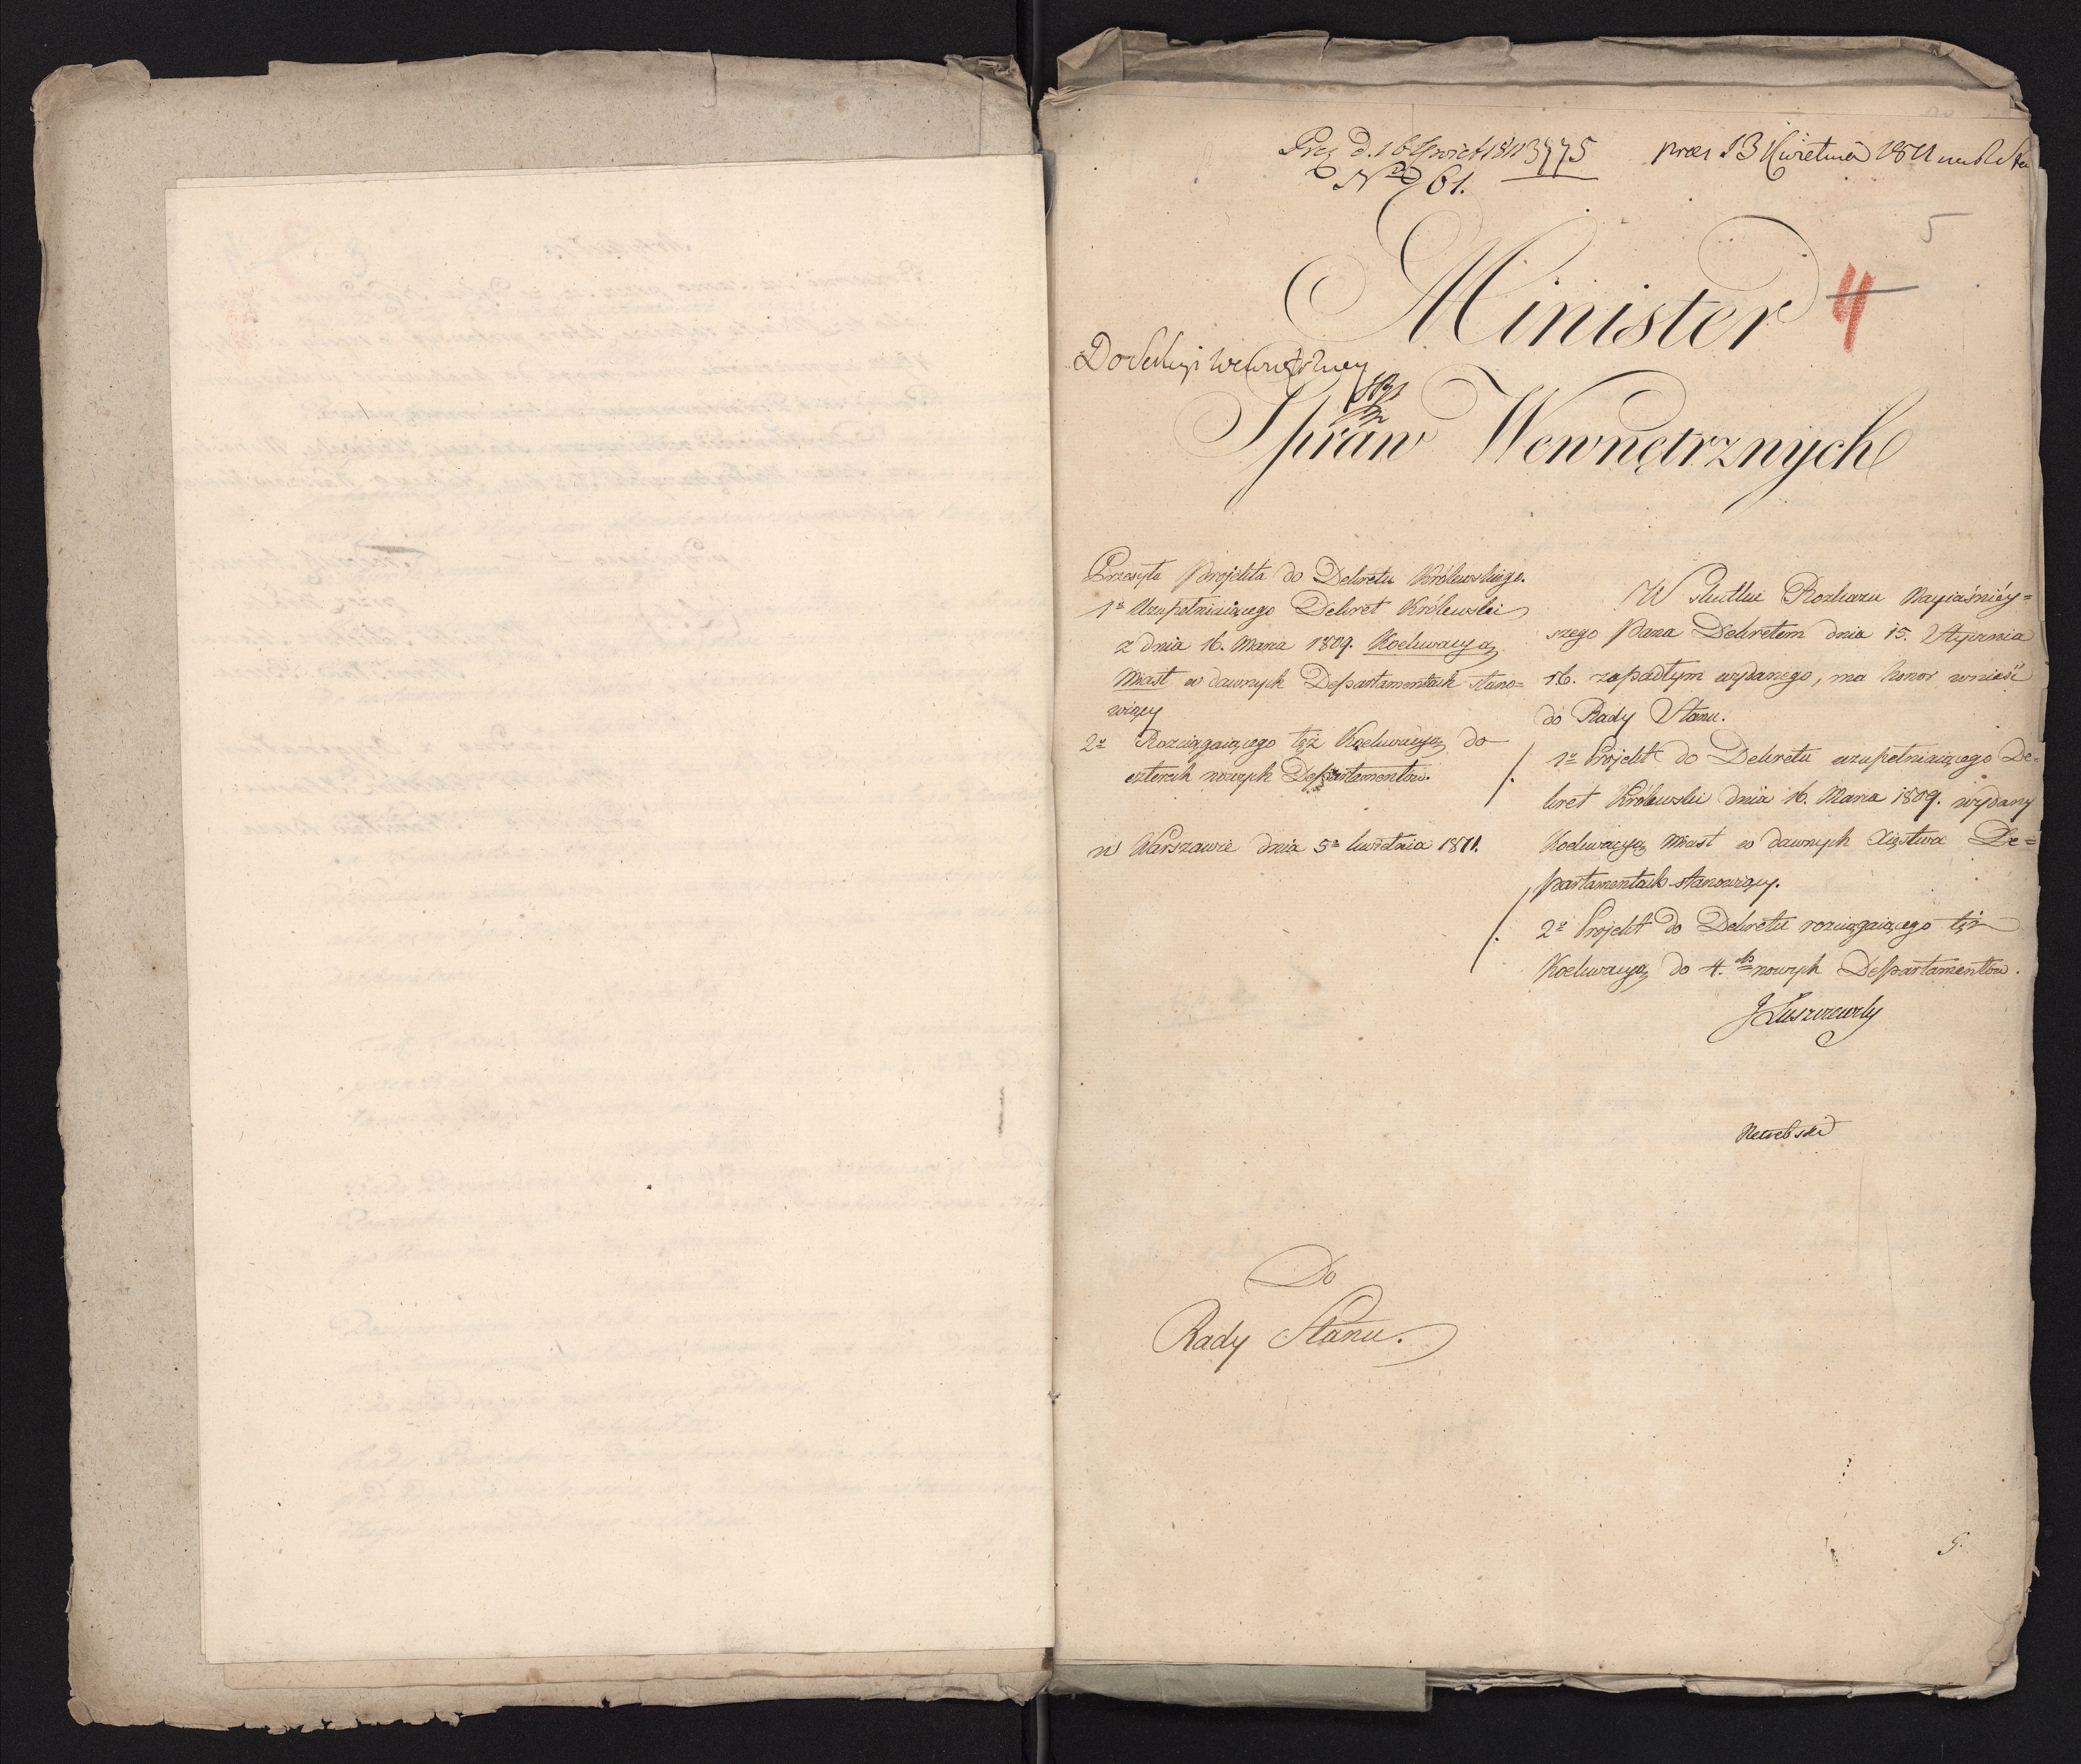 Prez d. 16 Kwiet 1811 3775
Nro 61.
prez 13 Kwietnia 1811
5
4
Minister
Do Sekcyi Wewnętrzney
Spraw Wewnętrznych
Przesyła Projekta do Dekretu Królewskiego.
1o Uzupełniaiącego Dekret Królewski
z dnia 16. Marca 1809. Koekwacyą
Miast w dawnych Departamentach stano=
wiący
2o Rozciągaiącego tęż Koekwacyą do
czterech nowych Departamentów.
w Warszawie dnia 5o kwietnia 1811.
W skutku Rozkazu Nayiaśniey=
szego Pana Dekretem dnia 15. Stycznia
r b. zapadłym wydanego, ma honor wnieść
do Rady Stanu.
1o Projekt do Dekretu uzupełniaiącego De=
kret Królewski dnia 16. Marca 1809. wydany
Koekwacyą Miast w dawnych Xięstwa De=
partamentach stanowiący.
2o Projekt do Dekretu rozciągaiącego tęż
Koekwacyą do 4.ch nowych Departamentów.
J Łuszczewski
Do
Rady Stanu.